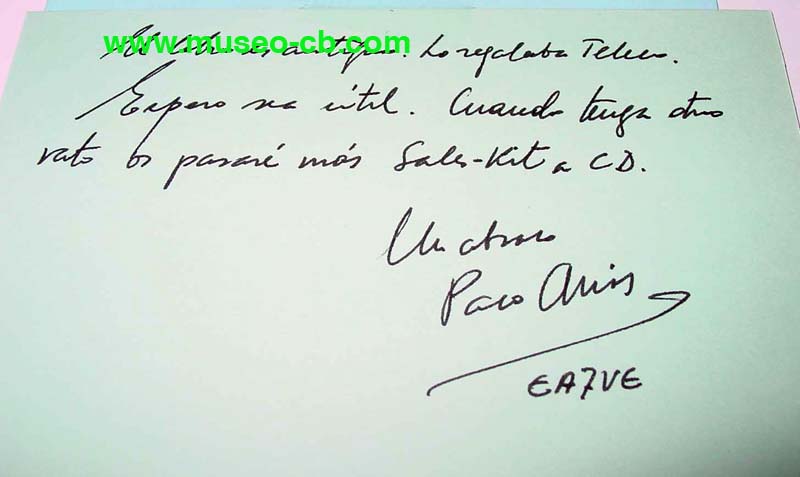 www.museo-cb.com
El libro es antiguo. Lo regalaba
Espero sea útil. Cuando tenga otro
rato os pasaré más Sales-Kit a CD.
Un abrazo
Paco
EA7VE